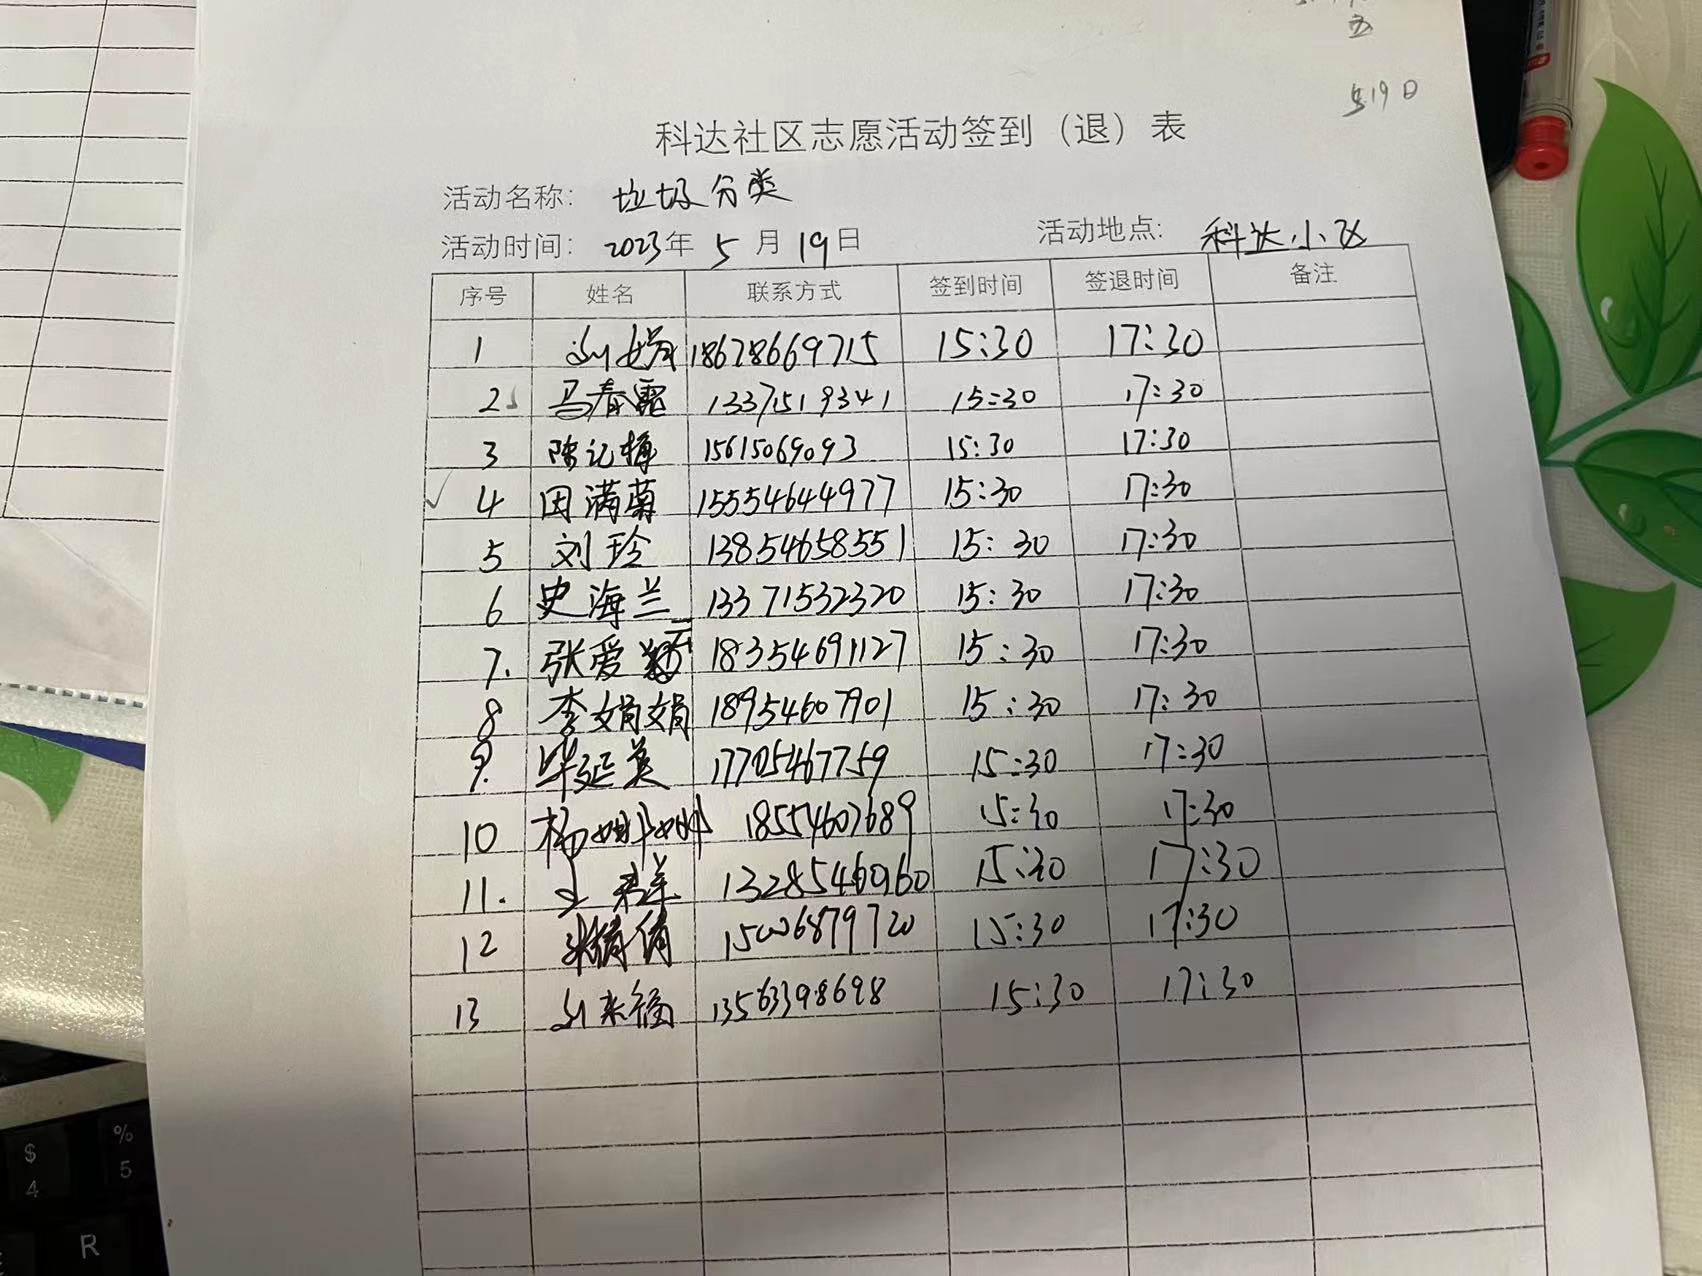 5.19日
科达社区志愿活动签到（退）表
活动名称： 垃圾分类
活动时间： 2023年 5 月 19日 活动地点： 科达小区
序号 姓名 联系方式 签到时间 签退时间 备注
1 刘娟 18678669715 15:30 17:30
2 马春霞 13371519341 15:30 17:30
3 陈记梅 15615069093 15:30 17:30
4 田满菊 15554644977 15:30 17:30
5 刘玲 13854658551 15:30 17:30
6 史海兰 13371532320 15:30 17:30
7. 张爱云 18354691127 15:30 17:30
8 李娟娟 18954607901 15:30 17:30
9. 毕延美 17705467759 15:30 17:30
10 杨娜娜 18554607689 15:30 17:30
11. 13285460960 15:30 17:30
12 倩倩 15006879720 15:30 17:30
13 刘来福 13563398698 15:30 17:30
$
4
%
5
R